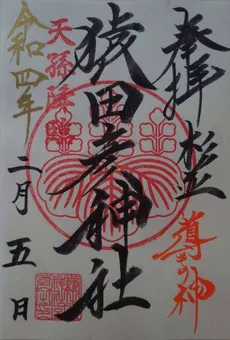 奉拝 杉並
導きの神
猿田彦神社
天孫降臨
令和四年
二月五日